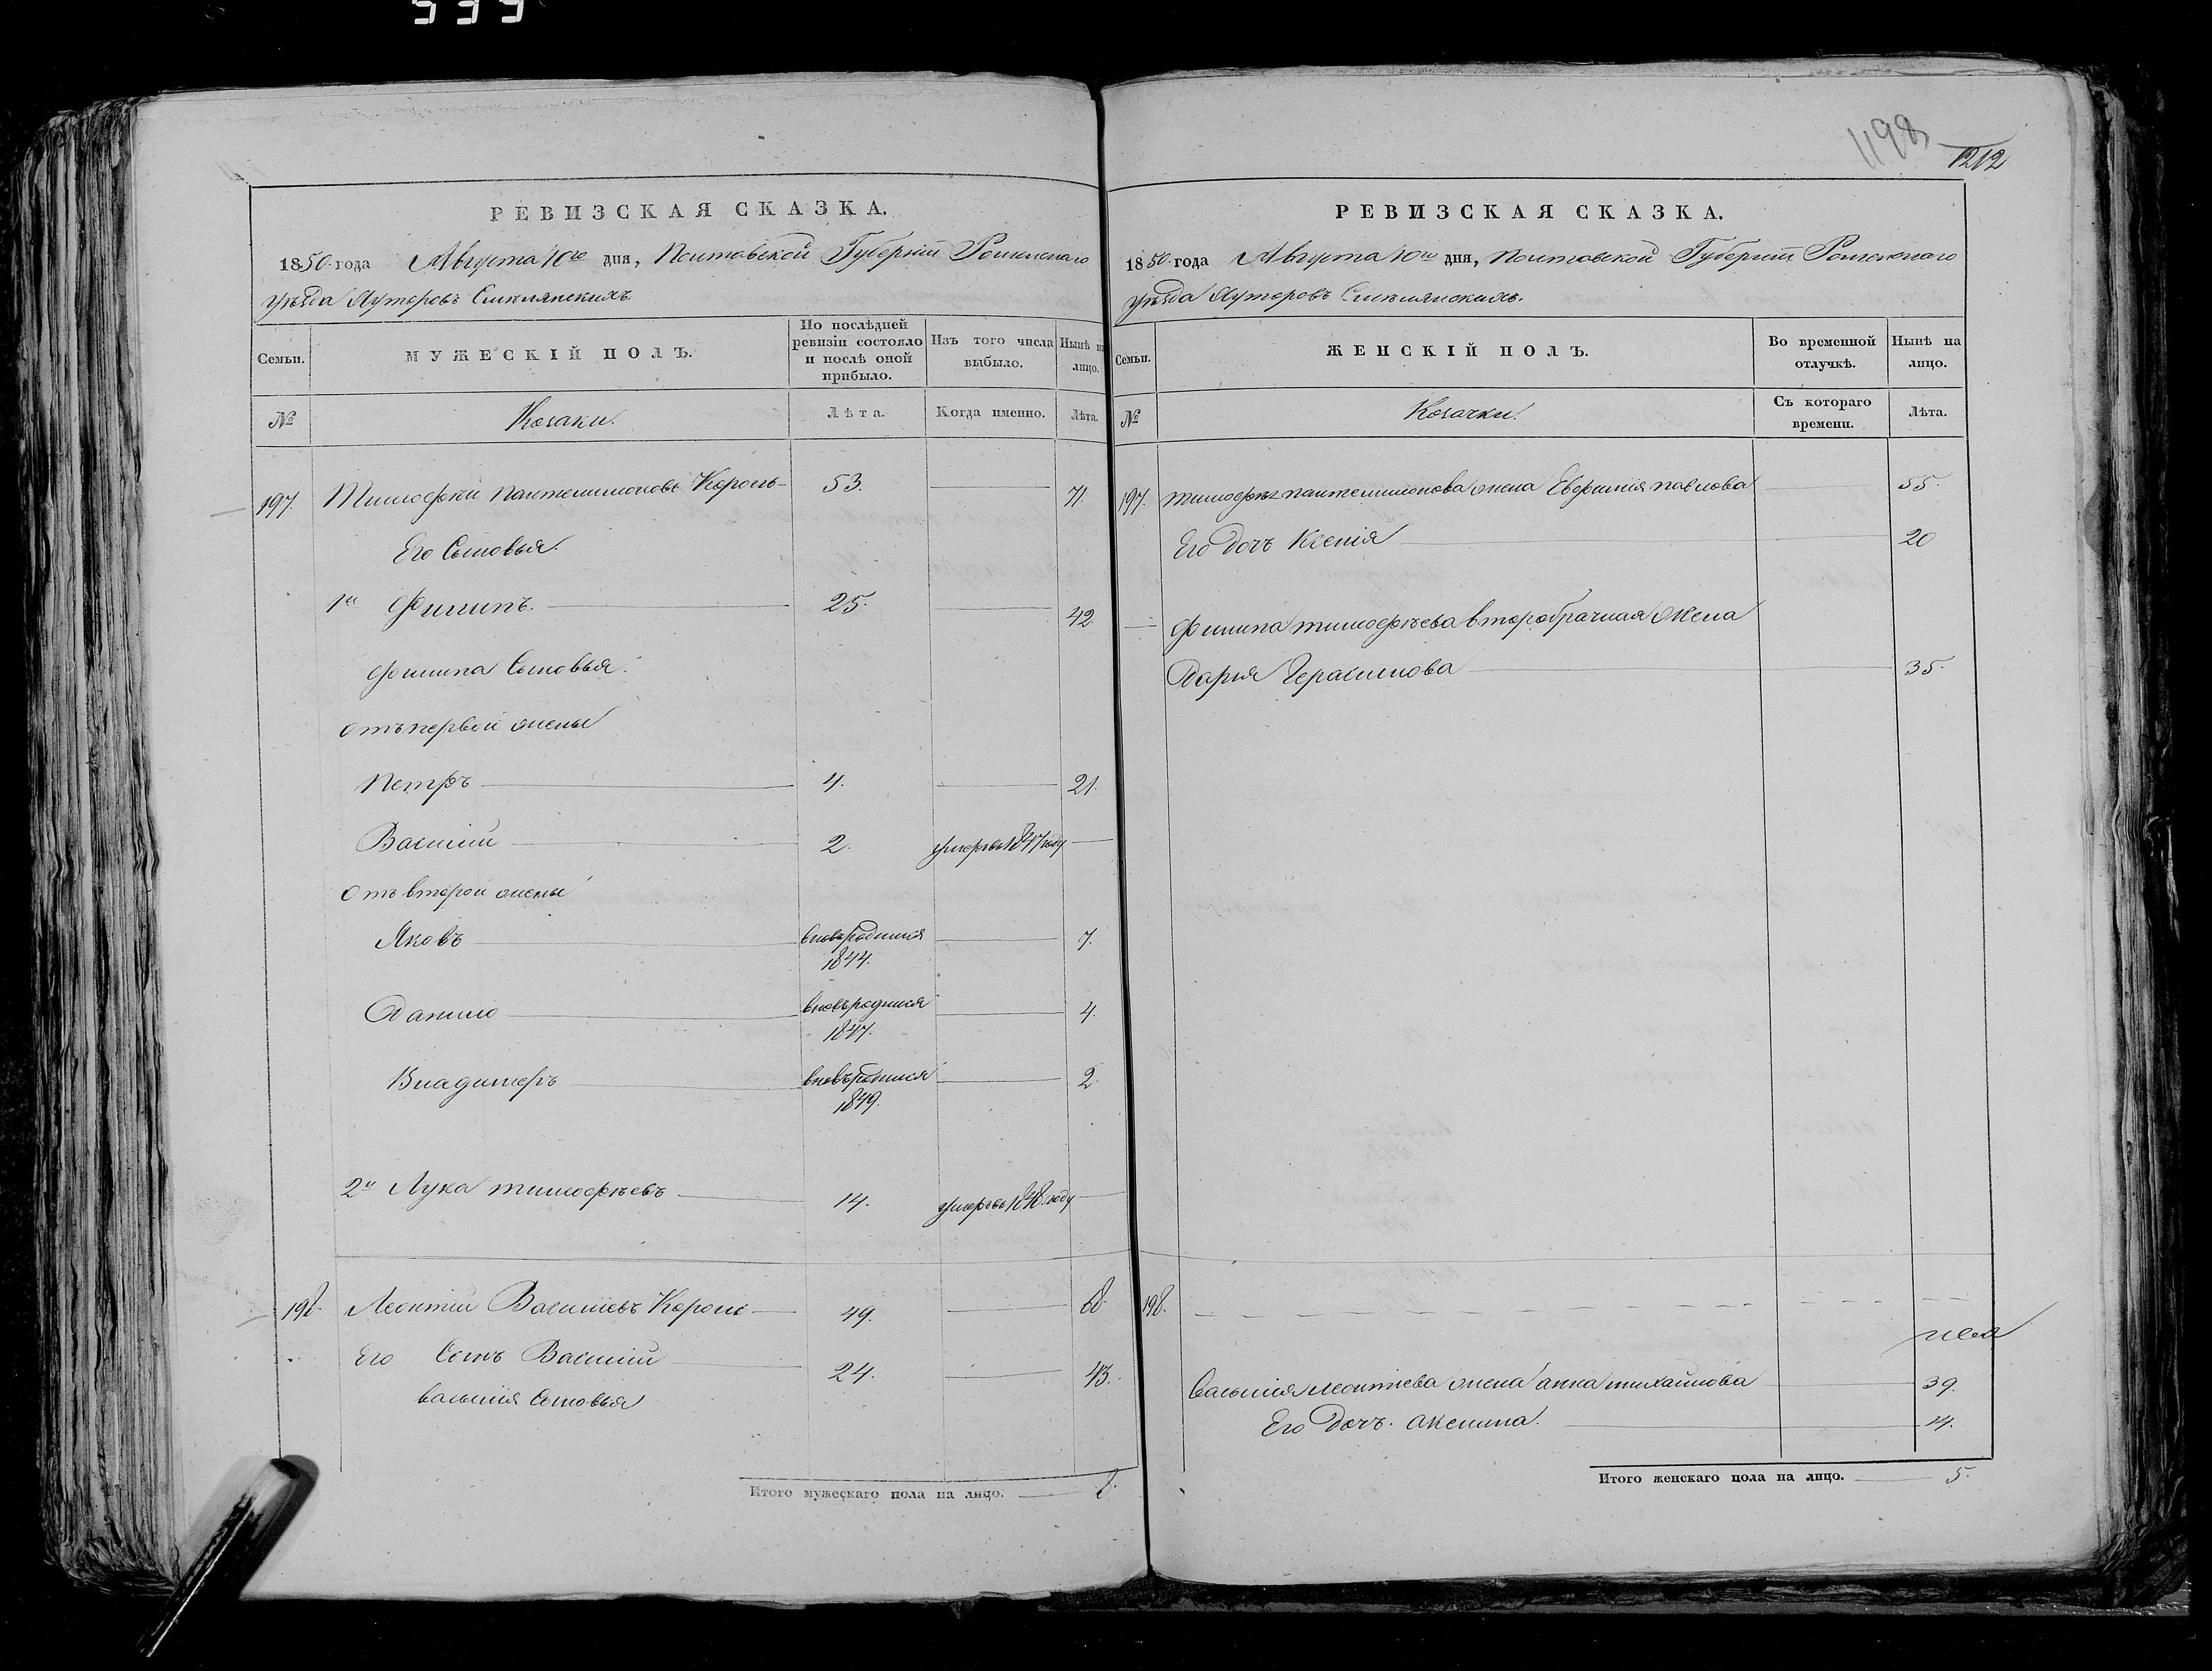 539
1198
1212
РЕВИЗСКАЯ СКАЗКА.
1850 года Августа 10го дня, Полтавской Губерніи Роменскаго
уѣзда Хуторовъ Смѣлянскихъ.
Семьи.
МУЖЕСКІЙ ПОЛЪ.
По послѣдней
ревизіи состояло
и послѣ оной
прибыло.
Изъ того числа
выбыло.
Нынѣ на
лицо.
№
Козаки.
Лѣта.
Когда именно.
Лѣта.
197. Тимофѣй Пантелимоновъ Король 53. 71.
Его Сыновья.
1й Филипъ. 25. 42.
Филипа Сыновья.
отъ первой жены
Петръ 4. 21.
Василій 2. умеръ въ 1847 году
Отъ второй жены
Яковъ вновьродился 7.
1844.
Данило вновьродился 4.
1847.
Владимеръ вновьродился 2.
1849.
2й Лука Тимофѣевъ 14. умеръ въ 1848 году
198. Леонтій Василіевъ Король 49. 68.
Его Сынъ Василій 24. 43.
Василія Сыновья
Итого мужескаго пола на лицо. 8.
РЕВИЗСКАЯ СКАЗКА.
1850 года Августа 10го дня, Полтавской Губерніи Роменскаго
уѣзда Хуторовъ Смѣлянскихъ.
Семьи.
ЖЕНСКІЙ ПОЛЪ.
Во временной
отлучкѣ.
Нынѣ на
лицо.
№
Козачки.
Съ котораго
времени.
Лѣта.
197. Тимофѣя Пантелимонова жена Евфимія Павлова 55.
Его дочь Ксенія 20
Филипа Тимофѣева второбрачная жена
Дарья Герасимова 35.
198.
Василія Леонтіева жена Анна Михайлова 39.
Его дочь Аксинія. 14.
Итого женскаго пола на лицо. 5.